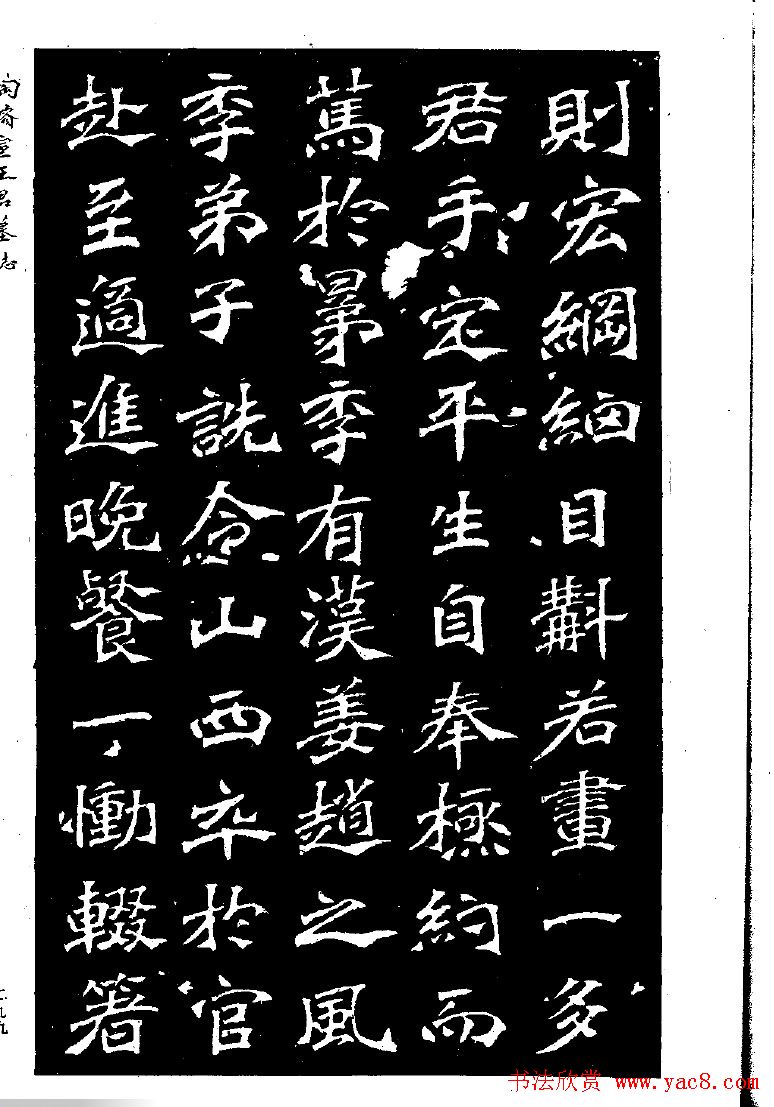 則宏綱細目斠若畫一多
君手定平生自奉極約而
篤於晜季有漢姜趙之風
季弟子詵令山西卒於官
赴至適進晚餐一慟輟箸
陶濬宣王君墓志
书法欣赏 www.yac8.com